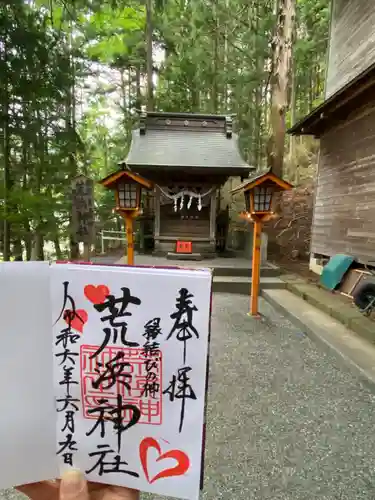 奉拝
縁結びの神
荒浜神社
令和六年六月九日